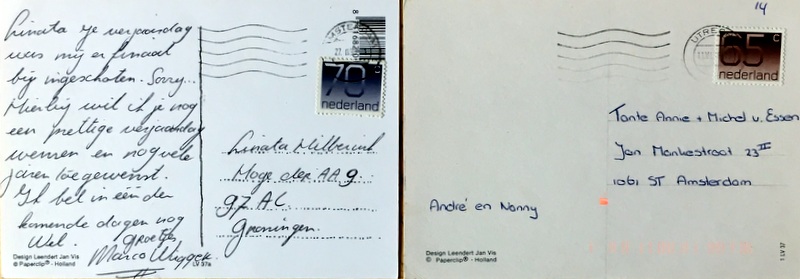 Linata je verjaardag
was mij er finaal
bij ingeschoten. Sorry...
Hierbij wil ik je nog
een prettige verjaardag
wensen en nog vele
jaren toegewenst.
Ik bel in één der
komende dagen nog
Wel. Groetjes,
Marco
Linata
Hoge der AA 9
97 AC
Groningen
70 c
nederland
Design Leendert Jan Vis
© Paperclip® - Holland
LV 37a
14
UTRE
65 c
nederland
Tante Annie + Michel v. Essen
Jan Mankestraat 23 III
1061 ST Amsterdam
André en Nanny
Design Leendert Jan Vis
© Paperclip® - Holland
LV 37